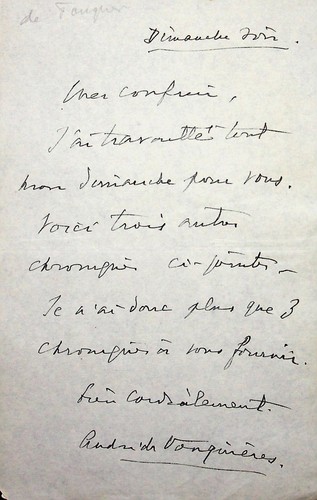 de Fouquières
Dimanche soir.
Cher confrère,
J'ai travaillé tout
mon dimanche pour vous.
Voici trois autres
chroniques ci-jointes –
Je n'ai donc plus que 3
chroniques à vous fournir.
Bien cordialement.
André de Fouquières.